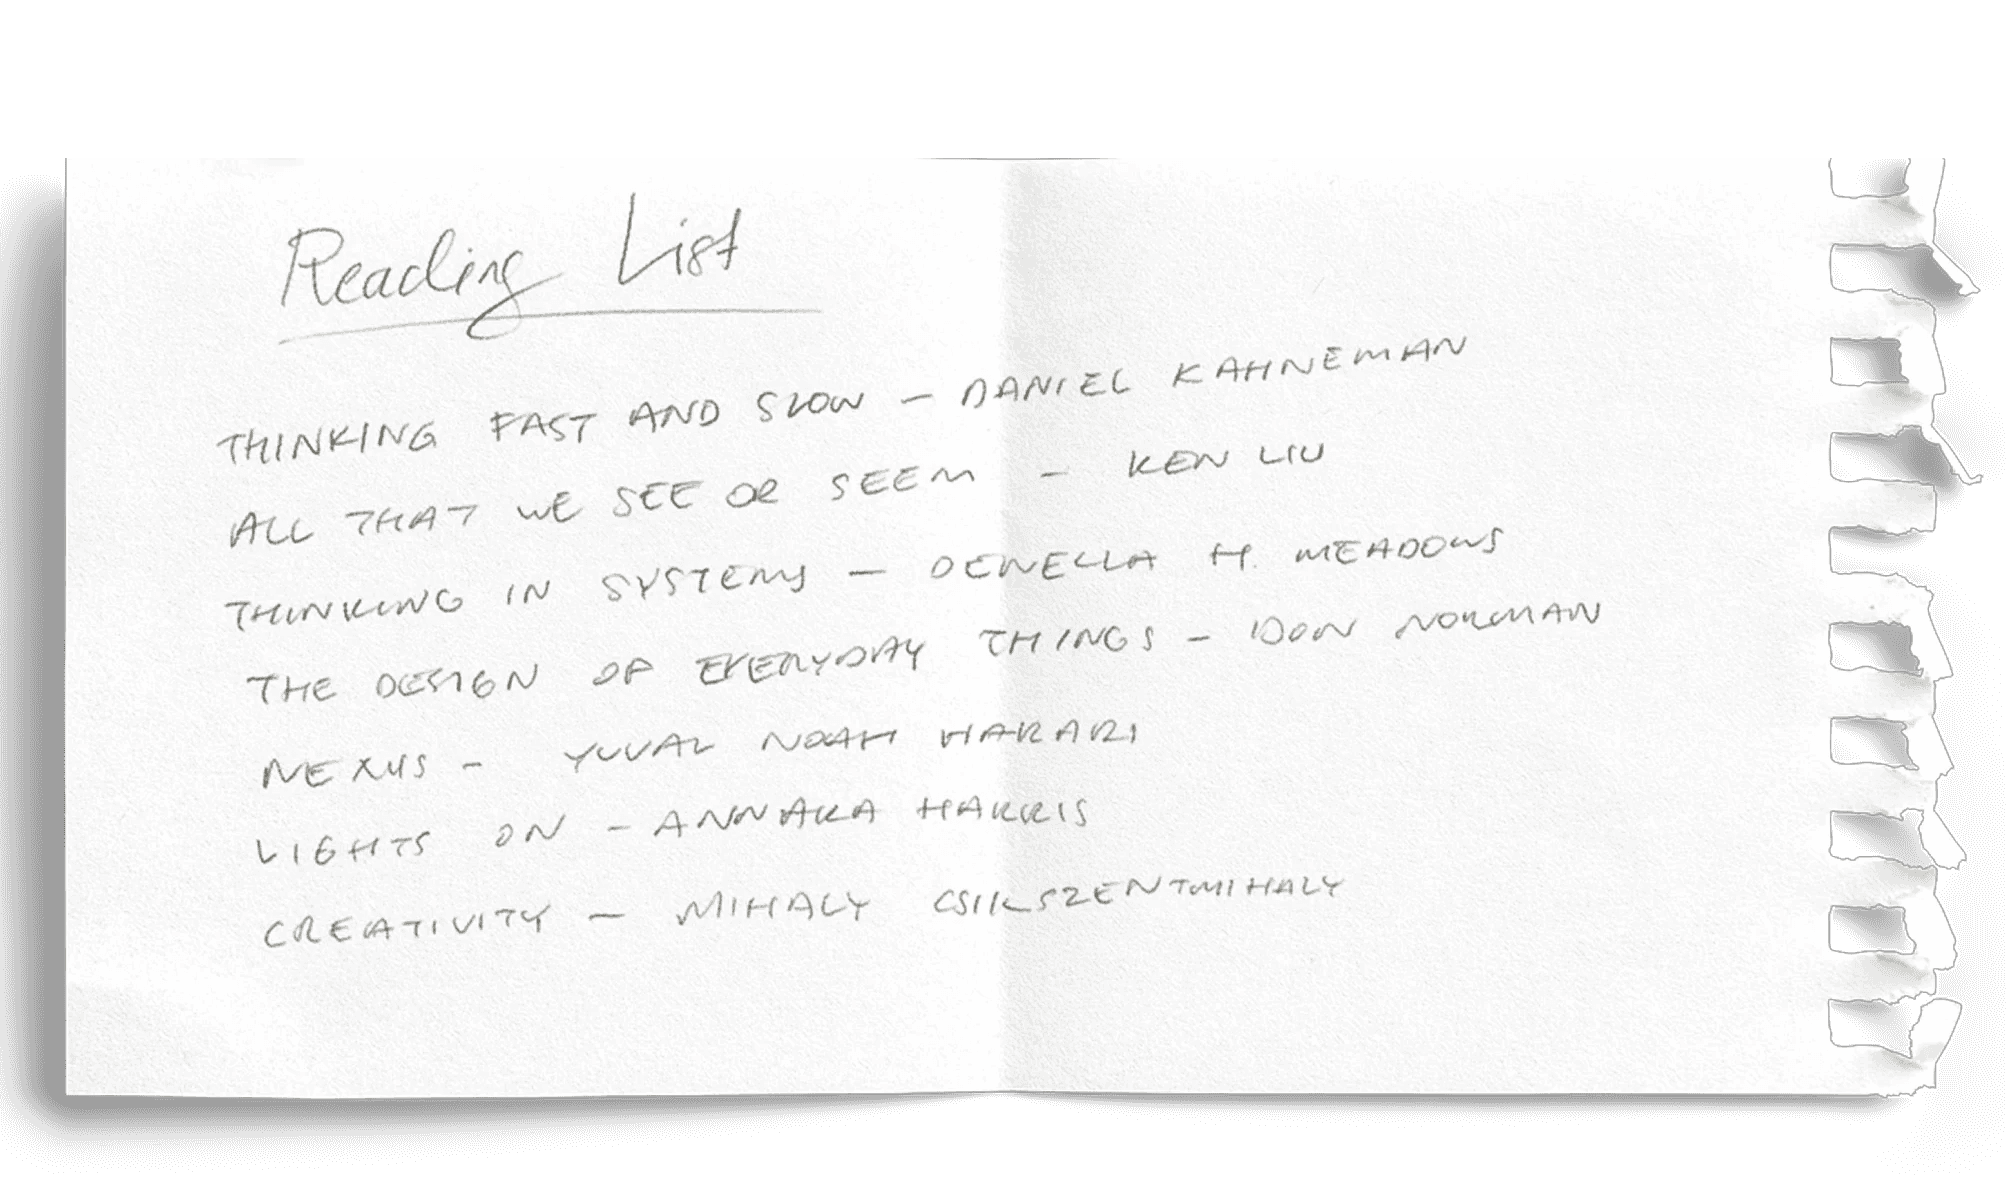 Reading List
THINKING FAST AND SLOW – DANIEL KAHNEMAN
ALL THAT WE SEE OR SEEM – KEN LIU
THINKING IN SYSTEMS – DENELLA H. MEADOWS
THE DESIGN OF EVERYDAY THINGS – DON NORMAN
NEXUS – YUVAL NOAH HARARI
LIGHTS ON – ANNAKA HARRIS
CREATIVITY – MIHALY CSIKSZENTMIHALY